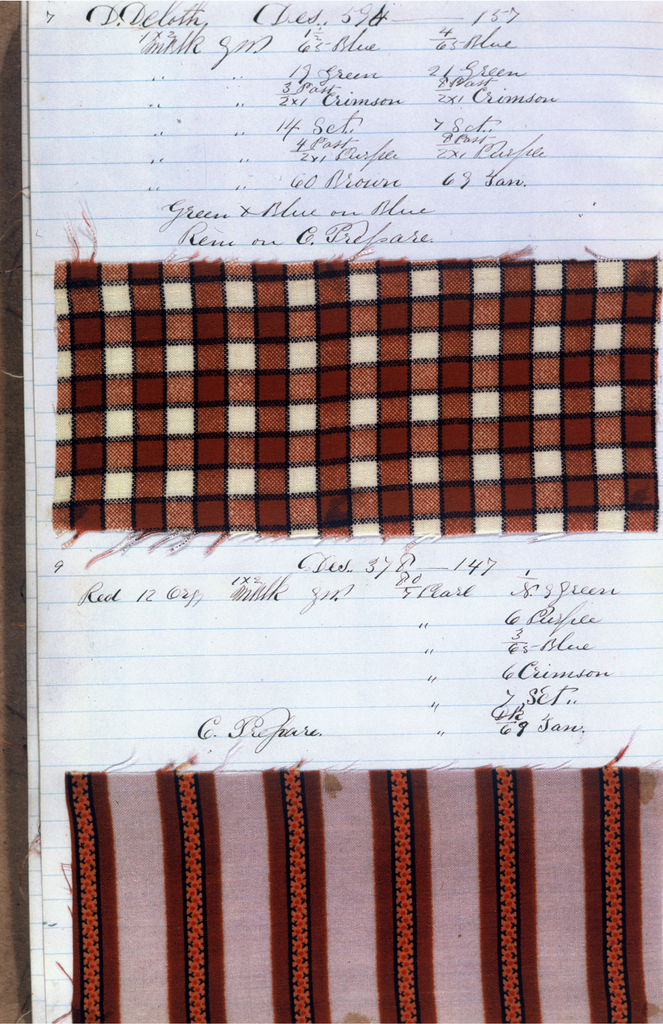 7 D. Deloth, Des. 594 — 157
1x2 Blk gm 1½/65 Blue 4/65 Blue
" " 19 Green 21 Green
" " 3 Past 2x1 Crimson Past 2x1 Crimson
" " 14 Set. 7 Set.
" " 4 Past 2x1 Purple Past 2x1 Purple
" " 60 Brown 69 Tan.
Green & Blue on Blue
Rem on C. Prepare.
9 Des. 378 — 147
Red 12 Org 1x2 Blk gm Pearl 9 Green
" 6 Purple
3/65 Blue
" 6 Crimson
" 7 Set.
C. Prepare. " Dk 69 Tan.